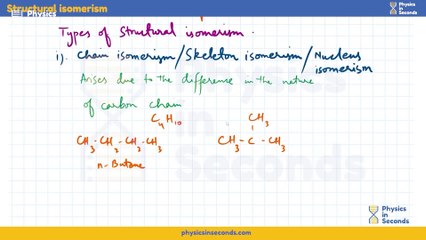 Structural isomerism
Physics
in Seconds
Types of Structural isomerism.
1). Chain isomerism/Skeleton isomerism/Nucleus
isomerism
Arises due to the difference in the nature
of carbon chain
C4H10
CH3
CH3-CH2-CH2-CH3
CH3-C-CH3
n-Butane
Physics
in
Seconds
Physics
in
Seconds
physicsinseconds.com